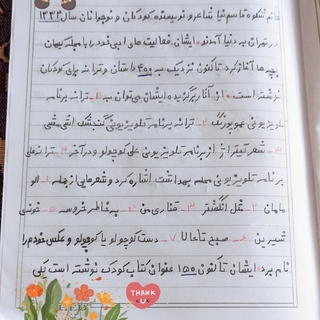 خانم شکوه قاسم نیا شاعر و نویسنده کودکان و نوجوانان سال ۱۳۳۴
در تهران به دنیا آمدند. ایشان فعالیت های ادبی خود را با مجله کیهان
بچه ها آغاز کرد تا کنون نزدیک به ۴۰۰ داستان و ترانه برای کودکان
نوشته است. از آثار برگزیده ایشان می توان به ۱- ترانه برنامه
تلویزیونی هوپورنگ ۲- ترانه برنامه تلویزیونی گنجشک اشی مشی
۳- شعر تیتراژ از برنامه تلویزیونی علی کوچولو و در آخر ۴- ترانه های
برنامه تلویزیونی محله بهداشت اشاره کرد و شعرهایی از جمله ۱- الو
مامان ۲- شکل انگشتر ۳- قناری من ۴- به خاطر خروسه ۵- خونه ی
شیرین ۶- صبح تا حالا ۷- دست کوچولو پا کوچولو و عکس خودم را
نام برد. ایشان تا کنون ۱۵۰ عنوان کتاب کودک نوشته است یکی
THANK